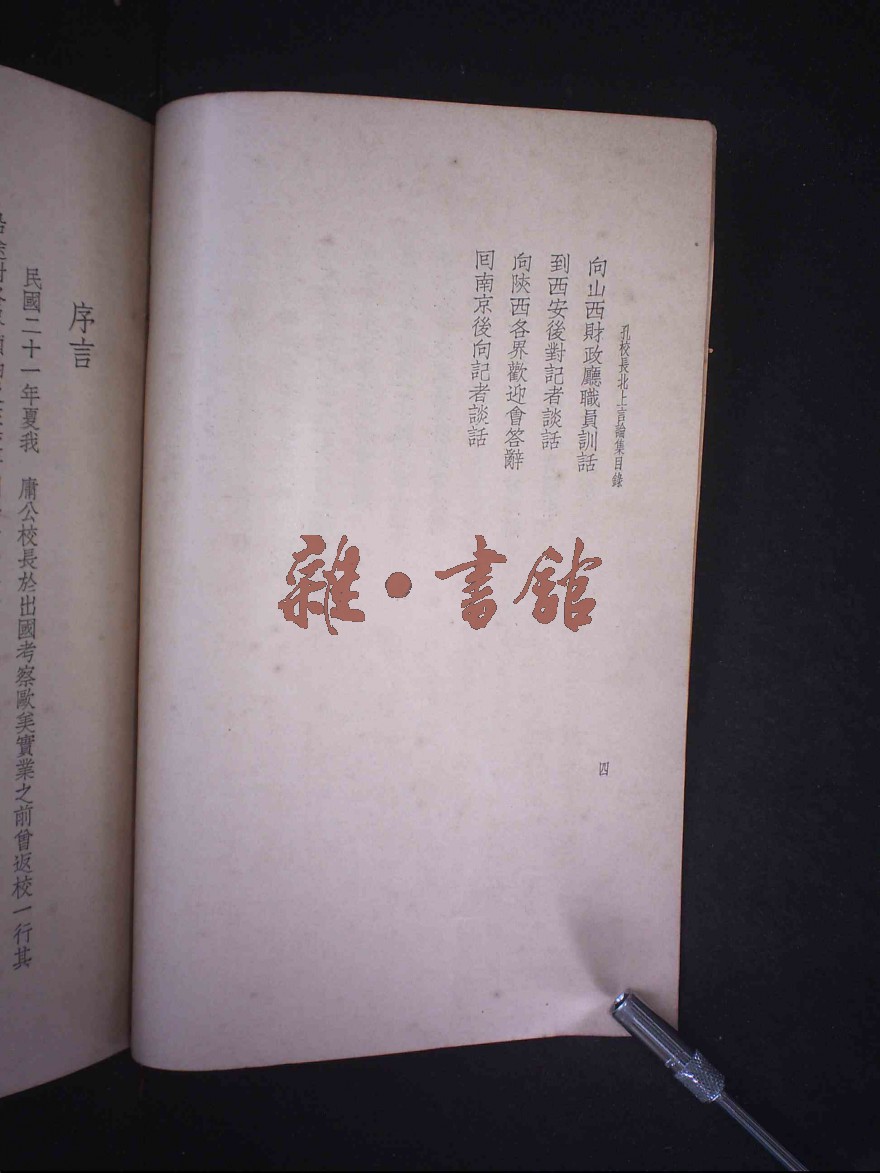 孔校長北上言論集目錄
向山西財政廳職員訓話
到西安後對記者談話
向陝西各界歡迎會答辭
回南京後向記者談話
四
雜・書館
序言
民國二十一年夏我　庸公校長於出國考察歐美實業之前曾返校一行其